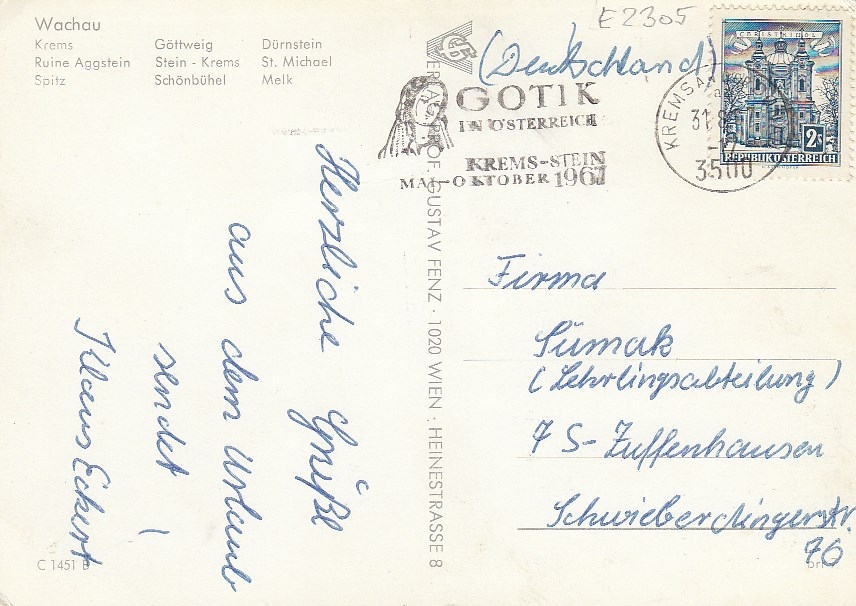 Wachau
Krems Göttweig Dürnstein
Ruine Aggstein Stein - Krems St. Michael
Spitz Schönbühel Melk
E2305
(Deutschland)
CHRISTKINDL
2S
REPUBLIK ÖSTERREICH
GOTIK
IN ÖSTERREICH
KREMS-STEIN
MAI-OKTOBER 1967
KREMS A
31.8
3500
Herzliche Grüße
aus dem Urlaub
sendet !
Klaus Eckert
VERLAG PROF. GUSTAV FENZ · 1020 WIEN · HEINESTRASSE 8
Firma
Sümak
(Lehrlingsabteilung)
7 S-Zuffenhausen
Schwieberdingerstr.
76
C 1451 B